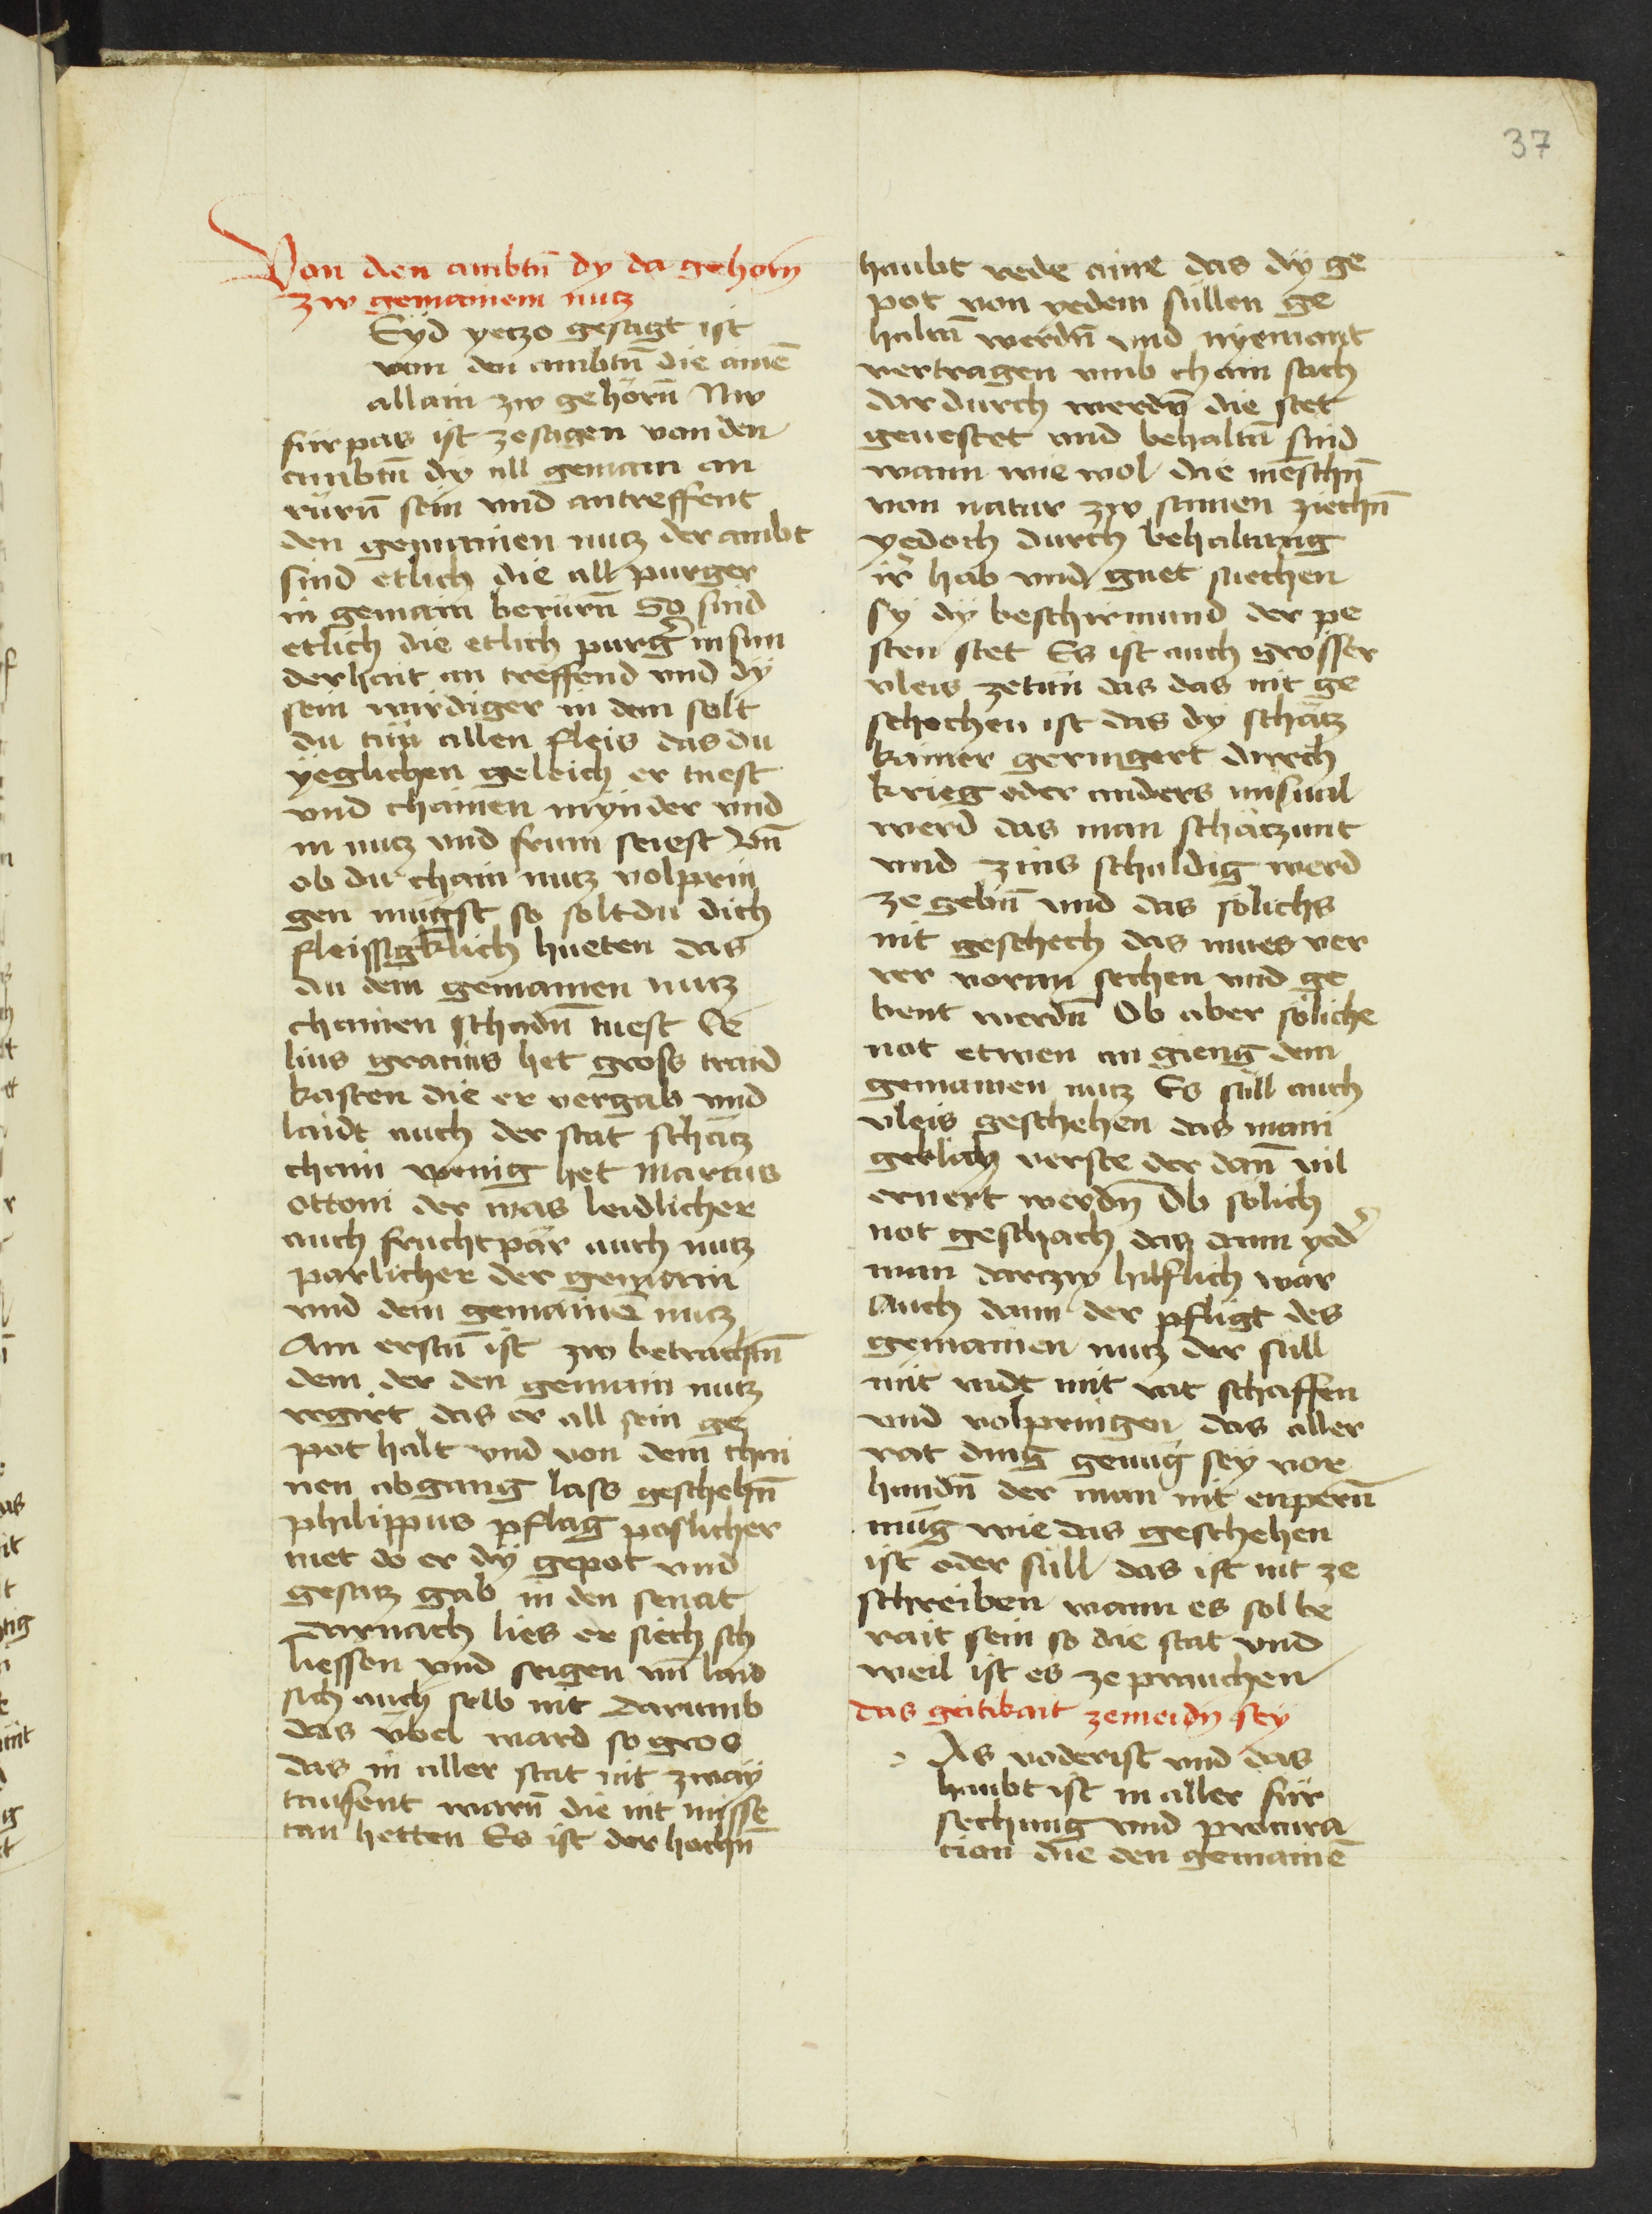 37
Von den ambtn̄ dy da gehorn
zw gemainem nutz
Eÿd yetzo gesagt ist
von den ambtn̄ die ainē
allain zw gehörn̄ Nw
fürpas ist zesagen von den
ambtn̄ dy all gemain an
rürn̄ sein vnd antreffent
den gemainen nutz der ambt
sind etlich die all purger
in gemain berürn̄ So sind
etlich die etlich purg̉ in sun
derhait an treffend vnd dÿ
sein wirdiger in dem solt
du tün allen fleis das du
ÿeglichen geleich er tuest
vnd chainen mÿnder vnd
in nutz vnd frum seiest Vn̄
ob du chain nutz volprin
gen mugst so solt du dich
fleissigklich hueten das
du dem gemainen nutz
chainen schadn̄ tuest Le
lius gracius het gross traid
kasten die er vergab vnd
laidt auch der stat schatz
chain wenig het Marcus
ottoni der mas leidlicher
auch fruchtpär auch nutz
parlicher der gemain
vnd dem gemainē nutz
Am erstn̄ ist zw betrachtn̄
dem der den gemain nutz
regirt das er all sein ge
pot halt vnd von dem chai
nen abgang lass geschehn̄
philippus pflag poslicher
met do er dÿ gepot vnd
gesatz gab in den senat
Darnach lies er siech sch
liessen vnd seigen vn̄ laid
sich auch selb nit darumb
das vbel ward so gros
das in aller stat nit zwaÿ
tausent warn̄ die nit misse
tan hetten Es ist der hochn̄
haubt rede aine das dÿ ge
pot von yedem süllen ge
haltn̄ werdn̄ vnd nyemant
vertragen vmb chain sach
dar durch werdn̄ die stet
geuestet vnd behaltn̄ sind
wann wie wol die mēschn̄
von natur zw samen ziechn̄
yedoch durch behaltung
ir̉ hab vnd guet suechen
sÿ dÿ beschirmund der pe
sten stet Es ist auch grosser
vleis zetün das das nit ge
schechen ist das dy schatz
kamer geringert durch
krieg oder anders vnsual
werd das man schatzunt
vnd zins schuldig werd
ze gebn̄ vnd das sölichs
nit geschech das mues ver
rer voran sechen vnd ge
bent werdn̄ Ob aber söliche
not etwen an gieng dem
gemainen nutz Es süll auch
vleis geschehen das mani
geklich verste der dan̄ vil
ernert werdn̄ Ob sölich
not geschach das dann yed̉
man darzw hilflich war
Auch dann der pfligt des
gemainen nutz der süll
mit vndt mit rat schaffen
vnd volpringen das aller
rat ding genug sey vor
handn̄ der man nit enpern̄
müg wie das geschehen
ist oder süll das ist nit ze
schreiben wann es sol be
rait sein so die stat vnd
weil ist es ze prauchen
das geitikait zemeidn̄ sey
As voderist vnd das
haubt ist in aller für
sechung vnd procura
cion die den gemainē